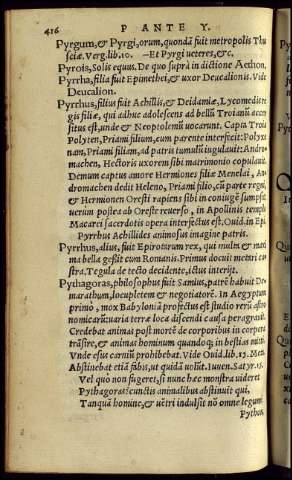 416 P ANTE Y.
Pyrgum,& Pyrgi,orum,quondã fuit metropolis Thu
sciæ.Verg.lib.10. –Et Pyrgi ueteres,&c.
Pyrois,Solis equus. De quo suprà in dictione Aethon.
Pyrrha,filia fuit Epimethei,& uxor Deucalionis. Vide
Deucalion.
Pyrrhus,filius fuit Achillis,& Deidamiæ, Lycomedis re
gis filiæ, qui adhuc adolescens ad bellũ Troianũ accer
situs est,unde & Neoptolemũ uocarunt. Capta Troia
Polyten,Priami filium,cum parente interfecit:Polyxe
nam,Priami filiam,ad patris tumulũ iugulauit:Andro
machen,Hectoris uxorem sibi matrimonio copulauit.
Demum captus amore Hermiones filiæ Menelai, An
dromachen dedit Heleno, Priami filio,cũ parte regni,
& Hermionen Oresti rapiens sibi in coniugẽ sumpsit
uerùm postea ab Oreste reuerso , in Apollinis templo
Macarei sacerdotis opera interfectus est.Ouid.in Epi
Pyrrhus Achillides animosus imagine patris.
Pyrrhus,alius,fuit Epirotarum rex, qui multa & maxi
ma bella gessit cum Romanis.Primus docuit metari ca
stra.Tegula de tecto decidente,ictus interijt.
Pythagoras,philosophus fuit Samius,patrẽ habuit De
marathum,locupletem & negotiatorẽ. In Aegyptum
primò , mox Babylonẽ profectus est studio rerũ astro
nomicarũ:uaria terræ loca discendi causa peragrauit.
Credebat animas post mortẽ de corporibus in corpora
trãsire,& animas hominum quandoq; in bestias mitti.
Vnde esus carniũ prohibebat. Vide Ouid.lib.15.Met.
Abstinebat etiã fabis,ut quidã uolũt. Iuuen.Satyr.15.
Vel quò non fugeret,si nunc hæc monstra uideret
Pythagoras:cunctis animalibus abstinuit qui,
Tanquã homine,& uẽtri indulsit nõ omne legumẽ
Pythau